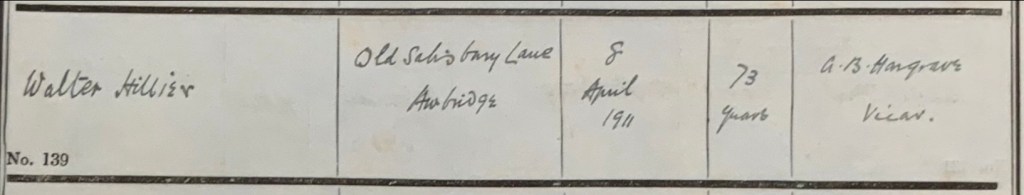 Walter Hillier
No. 139
Old Salisbury Lane
Awbridge
8
April
1911
73
years
A. B. Hargrave
Vicar.